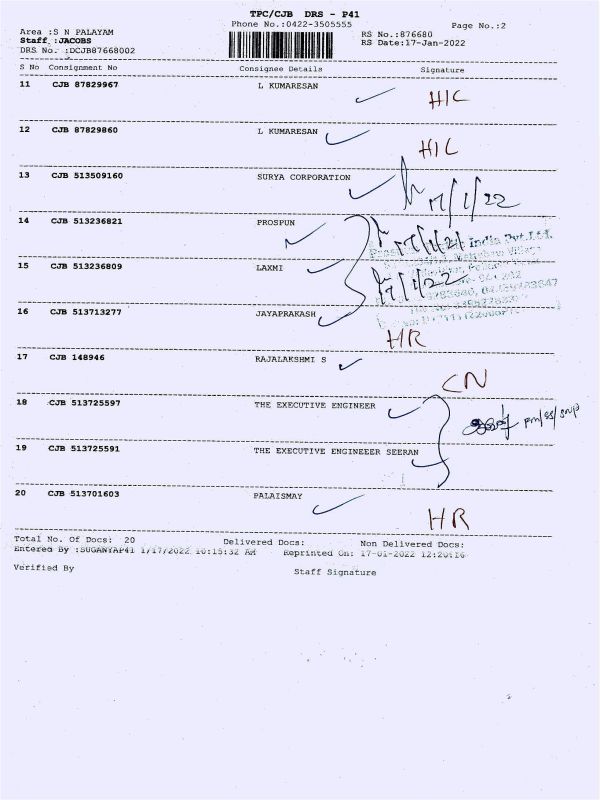 TPC/CJB DRS - P41
Phone No.:0422-3505555
Page No.:2
Area :S N PALAYAM
Staff :JACOBS
DRS No. :DCJB87668002
RS No.:876680
RS Date:17-Jan-2022
S No Consignment No Consignee Details Signature
11 CJB 87829967 L KUMARESAN
HIC
12 CJB 87829860 L KUMARESAN
HIC
13 CJB 513509160 SURYA CORPORATION
17/1/22
14 CJB 513236821 PROSPUN
India Pvt.Ltd.
15 CJB 513236809 LAXMI
17/1/22
16 CJB 513713277 JAYAPRAKASH
HR
17 CJB 148946 RAJALAKSHMI S
CN
18 CJB 513725597 THE EXECUTIVE ENGINEER
19 CJB 513725591 THE EXECUTIVE ENGINEEER SEERAN
20 CJB 513701603 PALAISMAY
HR
Total No. Of Docs: 20 Delivered Docs: Non Delivered Docs:
Entered By :SUGANYAP41 1/17/2022 10:15:32 AM Reprinted On: 17-01-2022 12:20:16
Verified By
Staff Signature